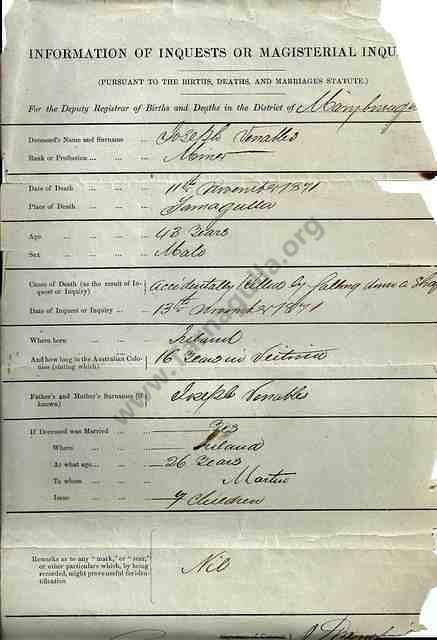 INFORMATION OF INQUESTS OR MAGISTERIAL INQU
(PURSUANT TO THE BIRTHS, DEATHS, AND MARRIAGES STATUTE.)
For the Deputy Registrar of Births and Deaths in the District of
Deceased's Name and Surname ... Joseph Venables
Rank or Profession ... Miner
Date of Death ... 11th November 1871
Place of Death ... Tarnagulla
Age ... 43 Years
Sex ... Male
Cause of Death (as the result of In- Accidentally killed by falling down a Sha
quest or Inquiry)
Date of Inquest or Inquiry ... 13th November 1871
Where born ... Ireland
And how long in the Australian Colo- 16 Years in Victoria
nies (stating which)
Father's and Mother's Surnames (if Joseph Venables
known)
If Deceased was Married ... Yes
Where ... Ireland
At what age ... 26 Years
To whom ... Martin
Issue ... 9 Children
Remarks as to any "mark," or "scar," Nil
or other particulars which, by being
recorded, might prove useful for iden-
tification
www.tarnagulla.org